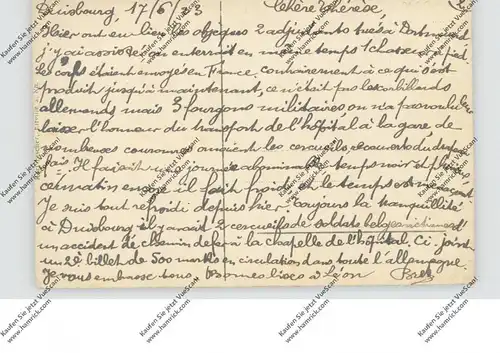 Duisbourg, 17/6/23 Chère Thérèse,
Hier ont eu lieu les obsèques 2 adjudants tués à Dortmund
j'y ai assisté on enterrait en même temps 1 chasseur à pied
les corps étaient envoyés en France, contrairement à ce qui s'est
produit jusqu'à maintenant, ce n'était pas les corbillards
allemands mais 3 fourgons militaires, on n'a pas voulu leur
laisser l'honneur du transport de l'hôpital à la gare, de
nombreuses couronnes ornaient les cercueils recouverts du drapeau
français. Il faisait une journée abominable temps noir et pluie
ce matin encore il fait froid et le temps est menaçant
Je suis tout refroidi depuis hier. Toujours la tranquillité
ici Duisbourg il y avait 2 cercueils de soldats belges victimes d'
un accident de chemin de fer à la chapelle de l'hôpital. Ci-joint
un 2è billet de 500 marks en circulation dans toute l'allemagne.
Je vous embrasse tous, Bonnes bises à Léon
Kaufen Sie jetzt ein auf
www.hamrick.com
VueScan